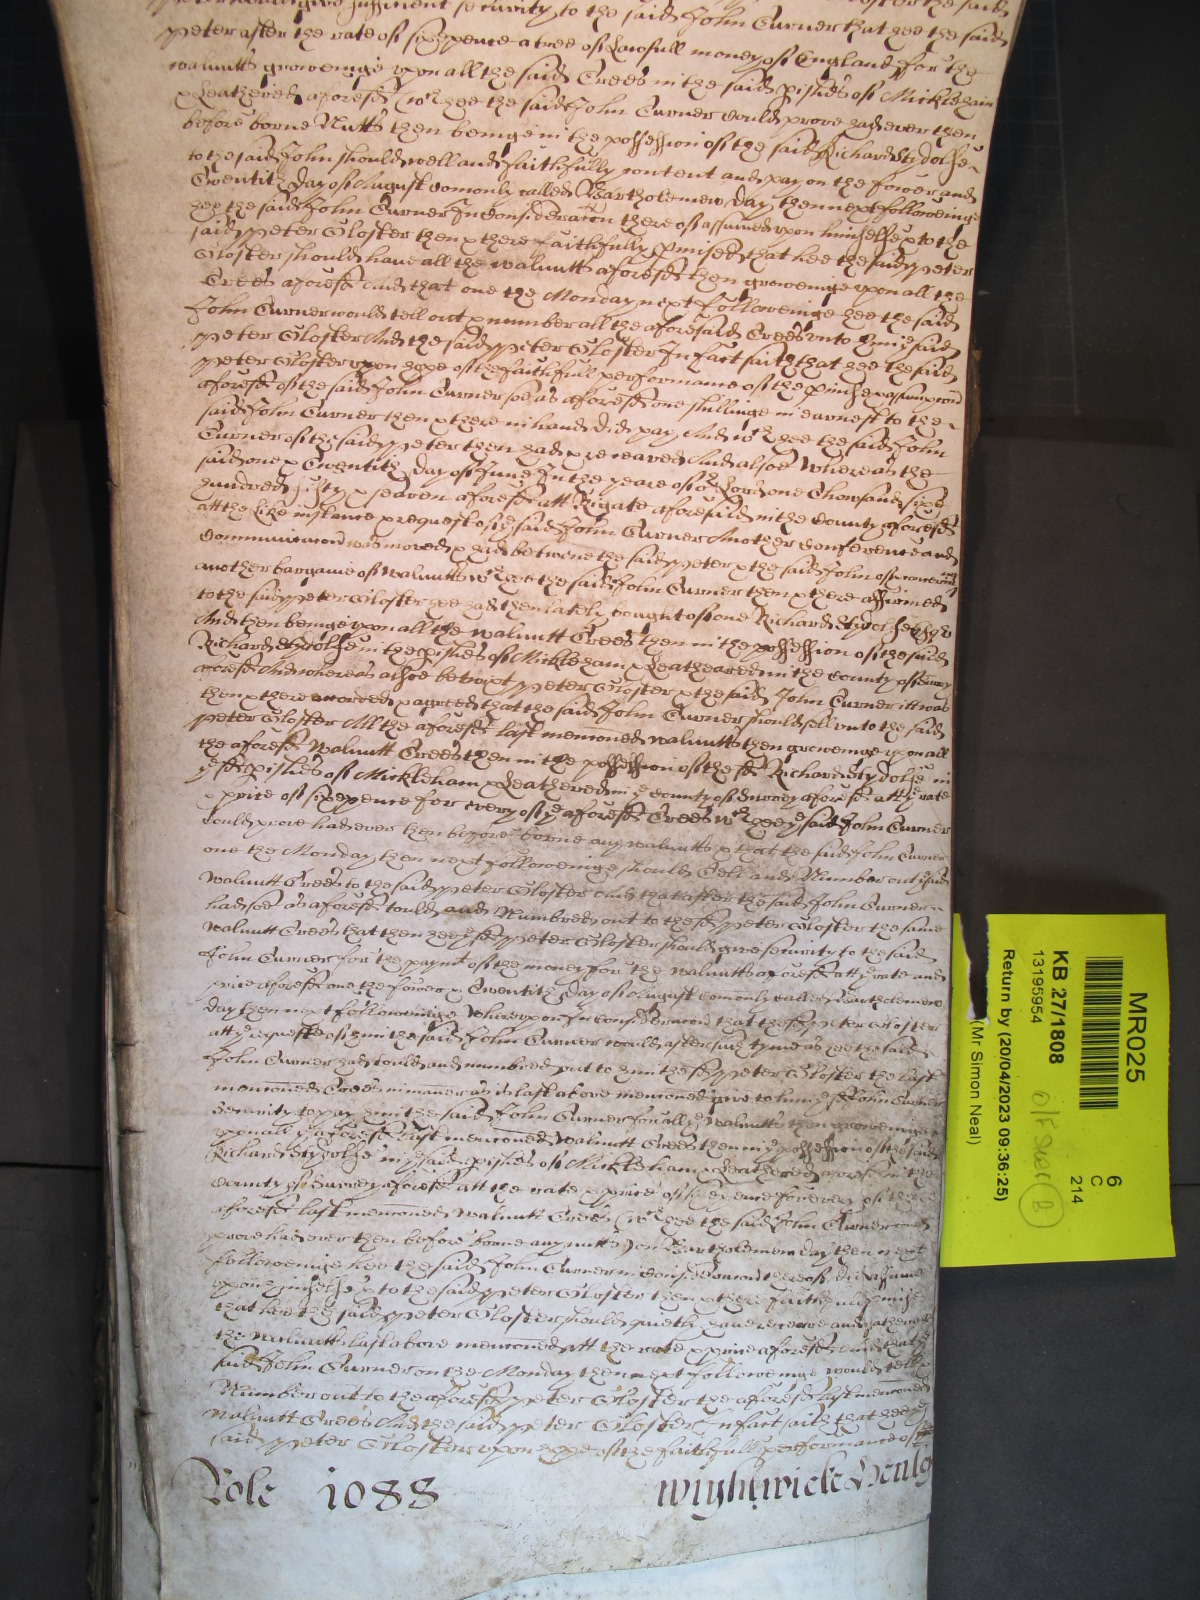 peter would give sufficient security to the said John Turner that hee the said
peter after the rate of sixepence a tree of Lawfull money of England for the
walnutts groweinge upon all the said Trees in the said pishes of Mickleham
& Leathered aforesd (wch hee the said John Turner could prove had ever then
before borne Nutts then beinge in the possession of the said Richard Stydolfe
to the said John should well and faithfully content and pay on the fower and
Twentith day of August comonly called Bartholomew day then next followeinge
hee the said John Turner In consideracon thereof assumed upon himselfe & to the
said peter Gloster then & there faithfully pmised that hee the said peter
Gloster should have all the walnutts aforesd then groweinge upon all the
Trees aforesd And that one the Monday next followeinge hee the said
John Turner would tell out & number all the aforesaid Trees unto him ye said
peter Gloster And the said peter Gloster In fact saith that hee the said
peter Gloster upon hope of the faithfull performance of the pmisse & assumpcon
aforesd of the said John Turner soe as aforesd one shillinge in earnest to the
said John Turner then & there in hand did pay And wch hee the said John
Turner of the said peter then had & receaved And alsoe Whereas the
said one & Twentith day of June In the yeare of or Lord one Thowsand sixe
hundred fifty & seaven aforesd att Rigate aforesaid in the county aforesd
att the like instance & request of ye said John Turner Another conference and
Communicacon was moved & had betweene the said peter & the said John of & concerninge
another bargaine of walnutts wch hee the said John Turner then & there affirmed
to the said peter Gloster hee had then lately bought of one Richard Stydolfe Esqr
And then beinge upon all the walnutt Trees then in the possession of the said
Richard Stydolfe in the pishes of Mickleham & Leathered in the county of Surrey
aforesd And whereas alsoe betwixt peter Gloster & the said John Turner it was
then & there accorded & agreed that the said John Turner should sell unto the said
peter Gloster All the aforesd last menconed walnutts then groweinge upon all
the aforesd Walnutt Trees then in the possession of the sd Richard Stydolfe in
ye sd pishes of Mickleham & Leathered in ye county of Surrey aforesd att ye rate
& price of sixepence for every of ye aforesd Trees wch hee ye said John Turner
could prove had ever then before borne any walnutts & that the said John Turner
one the Monday then next followeinge should Tell and Number out ye said
Walnutt Trees to the said peter Gloster And that after the said John Turner
had soe as aforesd tould and Numbred out to the sd peter Gloster the same
walnutt Trees that then hee ye sd peter Gloster should give security to the said
John Turner for the paymt of the money for the walnutts aforesd att ye rate and
price aforesd one the fower & Twentith day of August comonly called Bartholomew
day then next followeinge Whereupon In consideracon that the sd peter Gloster
att ye request of him the said John Turner would after such tyme as hee the said
John Turner had tould and numbred out to him the sd peter Gloster the last
menconed Trees in manner as is last above menconed give to him ye sd John Turner
Security to pay him the said John Turner for all ye walnutts then groweinge
upon all ye aforesd last menconed Walnutt Trees then in ye possession of the said
Richard Stydolfe in ye said pishes of Mickleham & Leathered aforesd in the
county of Surrey aforesd att the rate & price of sixepence for every of the
aforesd last menconed Walnutt Trees (wch hee the said John Turner could
prove had ever then before borne any nutts) on Bartholomew day then next
followeinge hee the said John Turner in consideracon thereof did assume
upon himselfe & to the said peter Gloster then & there faithfully pmise
that hee the said peter Gloster should quietly have receave and gather
the Walnutts last above menconed att the rate & price aforesd And that ye
said John Turner on the Monday then next followeinge would tell &
Number out to the aforesd peter Gloster the aforesd last menconed
walnutt Trees And the said peter Gloster In fact saith that hee ye
said peter Gloster upon hope of the faithfull performance of
Role 1088 Wightwicke
MR025
6
C
214
KB 27/1808
13195954
Return by (20/04/2023 09:36:25)
(Mr Simon Neal)